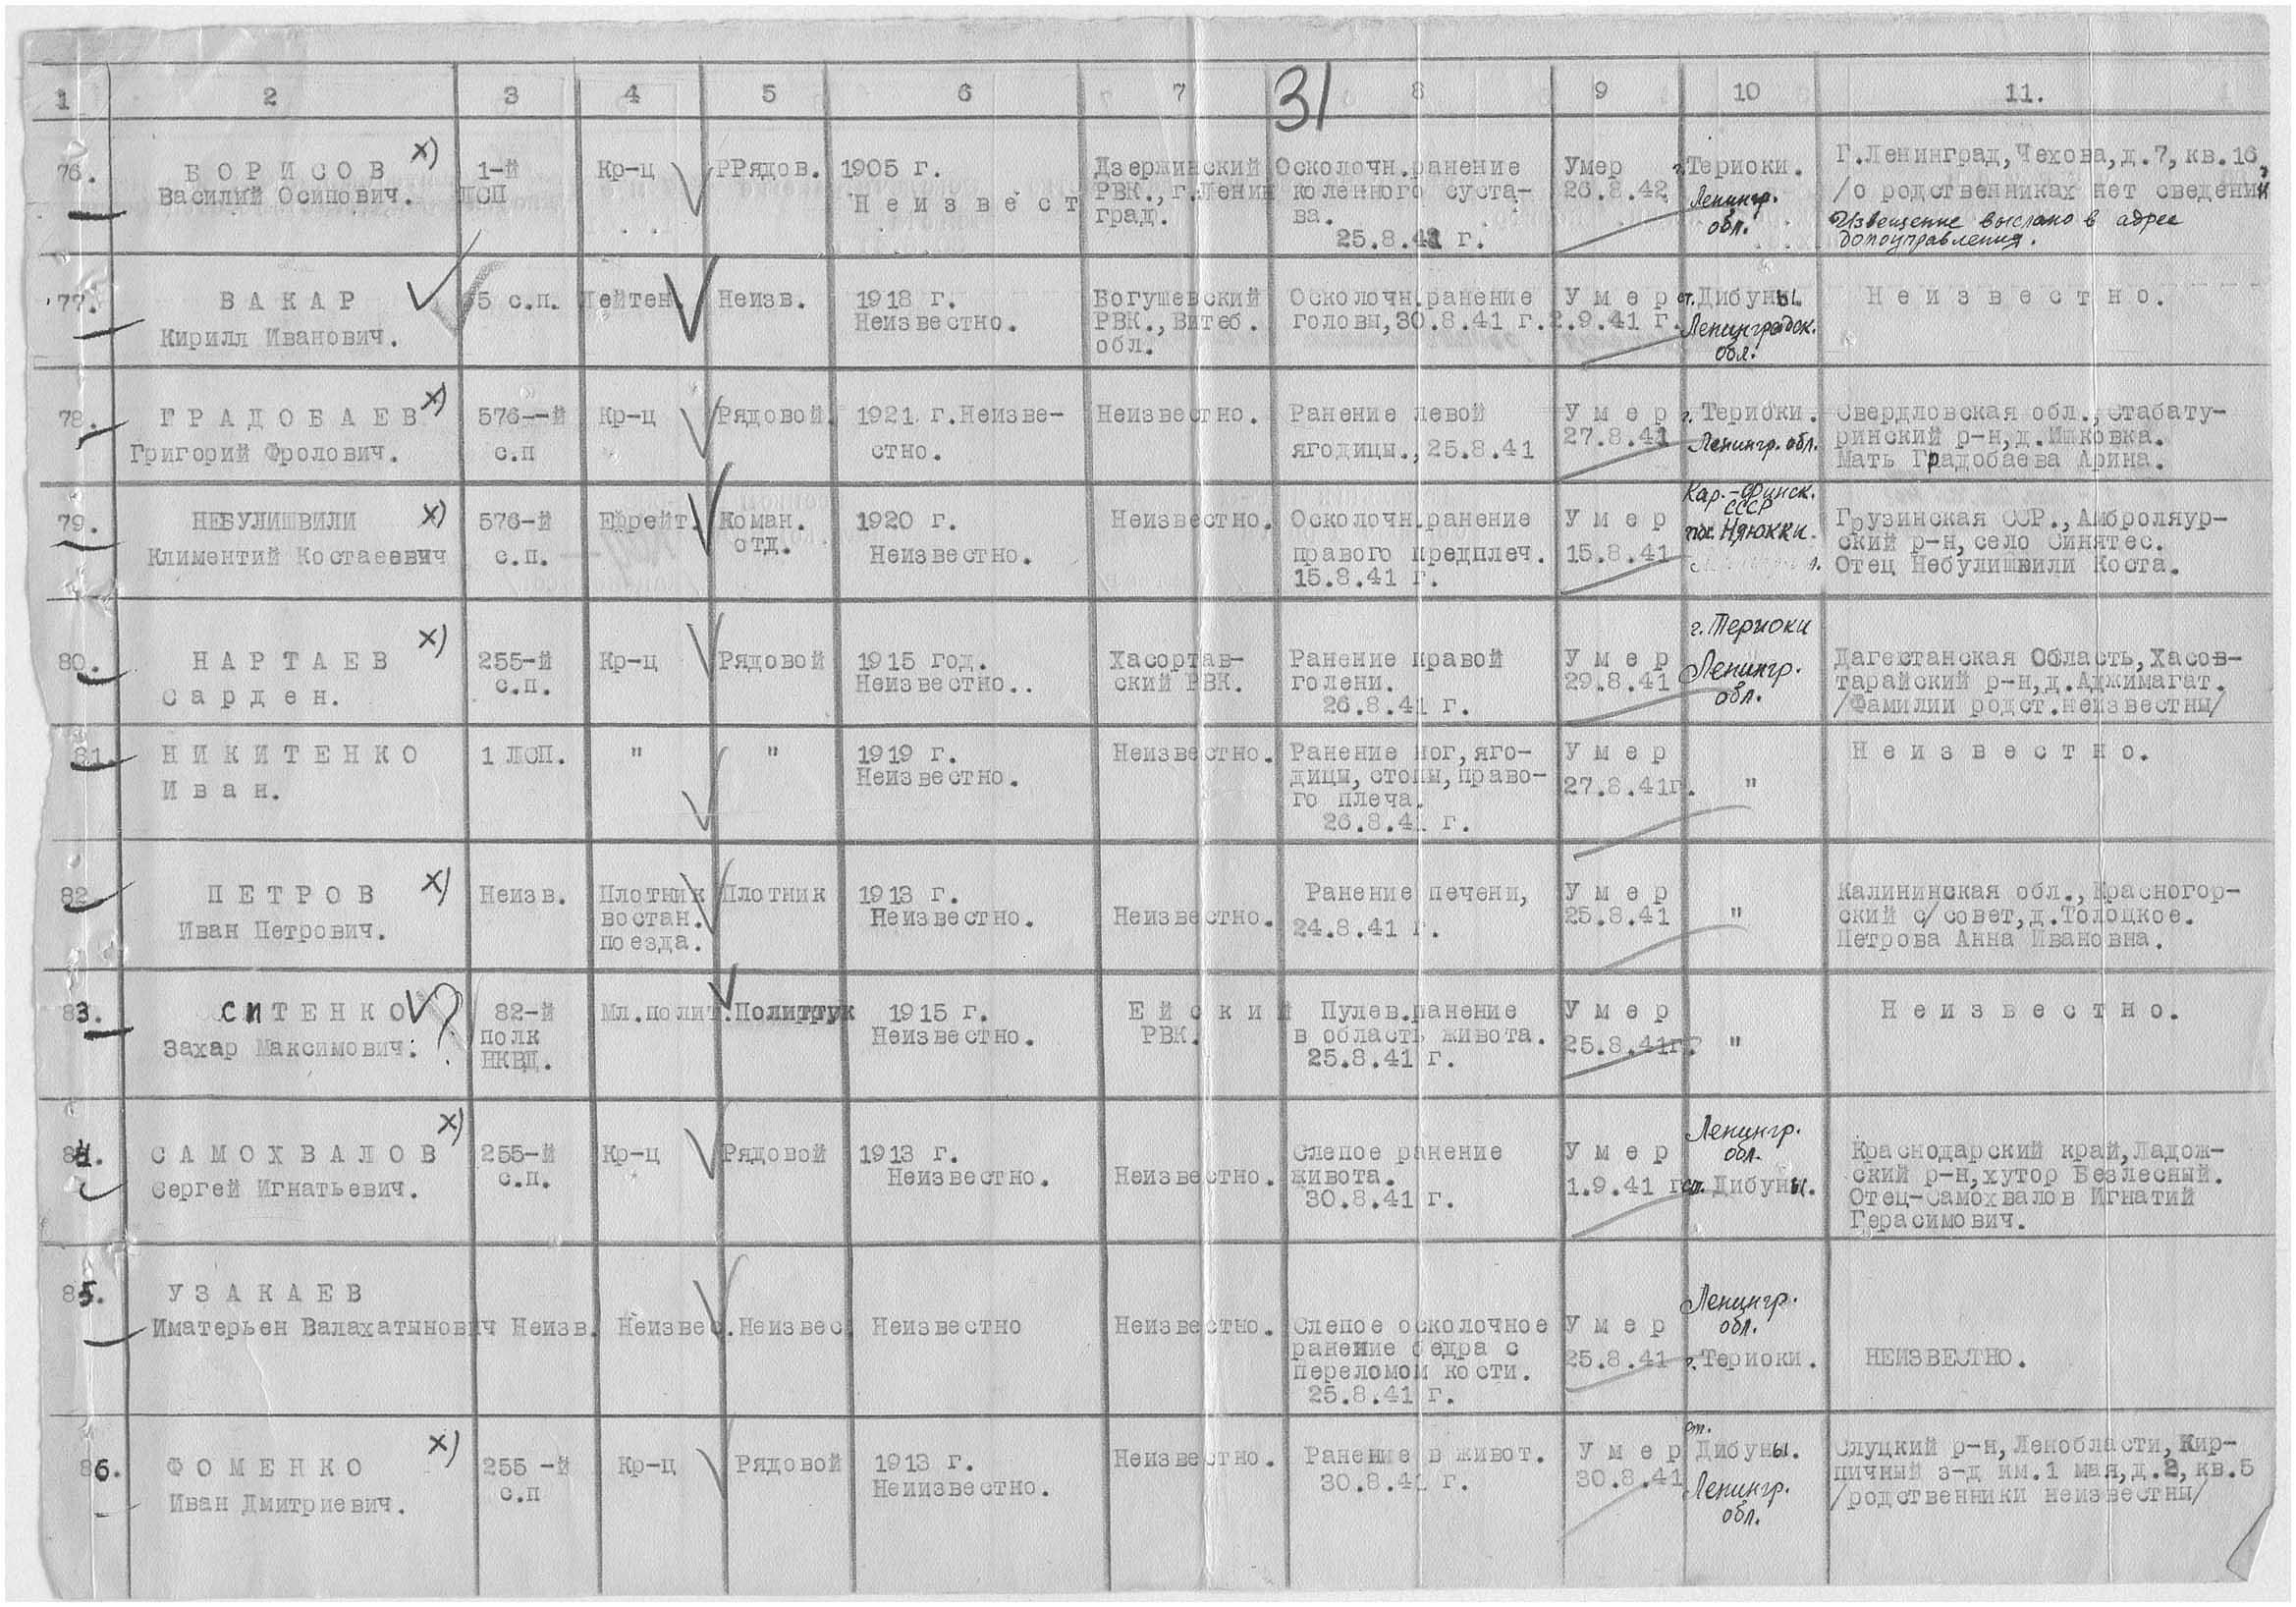 31
1 2 3 4 5 6 7 8 9 10 11.
76. БОРИСОВ х) 1-й Кр-ц РРядов. 1905 г. Дзержинский Осколочн.ранение Умер г.Териоки. Г.Ленинград,Чехова,д.7,кв.16,
Василий Осипович. ЛСП Неизвест РВК.,г.Ленин коленного суста- 26.8.42 Ленингр. /о родственниках нет сведений
град. ва. обл. Извещение выслано в адрес
25.8.41 г. домоуправления.
77. ВАКАР 5 с.п. Лейтен. Неизв. 1918 г. Богушевский Осколочн.ранение Умер ст.Дибуны. Неизвестно.
Кирилл Иванович. Неизвестно. РВК.,Витеб. головы,30.8.41 г. 2.9.41 г. Ленинградск.
обл. обл.
78. ГРАДОБАЕВ х) 576--й Кр-ц Рядовой. 1921 г.Неизве- Неизвестно. Ранение левой Умер г.Териоки. Свердловская обл.,Стабату-
Григорий Фролович. с.п стно. ягодицы.,25.8.41 27.8.41 Ленингр. обл. ринский р-н,д.Ишковка.
Мать Градобаева Арина.
79. НЕБУЛИШВИЛИ х) 576-й Ефрейт. Коман. 1920 г. Неизвестно. Осколочн.ранение Умер Кар.-Финск. СССР Грузинская ССР.,Амброляур-
Климентий Костаеевич с.п. отд. Неизвестно. правого предплеч. 15.8.41 пос. Няюкки. ский р-н,село Синятес.
15.8.41 г. Отец Небулишвили Коста.
80. НАРТАЕВ х) 255-й Кр-ц Рядовой 1915 год. Хасортав- Ранение правой Умер г.Териоки Дагестанская Область,Хасов-
Сарден. с.п. Неизвестно.. ский РВК. голени. 29.8.41 Ленингр. тарайский р-н,д.Аджимагат.
26.8.41 г. обл. /Фамилии родст.неизвестны/
81. НИКИТЕНКО 1 ЛСП. " " 1919 г. Неизвестно. Ранение ног,яго- Умер " Неизвестно.
Иван. Неизвестно. дицы,стопы,право- 27.8.41г.
го плеча.
26.8.41 г.
82 ПЕТРОВ х) Неизв. Плотник Плотник 1913 г. Неизвестно. Ранение печени, Умер " Калининская обл.,Красногор-
Иван Петрович. востан. Неизвестно. 24.8.41 г. 25.8.41 ский с/совет,д.Толоцкое.
поезда. Петрова Анна Ивановна.
83. СИТЕНКО ? 82-й Мл.полит. Политрук 1915 г. Ейский Пулев.ранение Умер " Неизвестно.
Захар Максимович. полк Неизвестно. РВК. в область живота. 25.8.41г.
НКВД. 25.8.41 г.
84. САМОХВАЛОВ х) 255-й Кр-ц Рядовой 1913 г. Неизвестно. Слепое ранение Умер Ленингр. обл. Краснодарский край,Ладож-
Сергей Игнатьевич. с.п. Неизвестно. живота. 1.9.41 г ст. Дибуны. ский р-н,хутор Безлесный.
30.8.41 г. Отец-Самохвалов Игнатий
Герасимович.
85. УЗАКАЕВ
Иматерьен Валахатынович Неизв. Неизвес. Неизвес. Неизвестно Неизвестно. Слепое осколочное Умер Ленингр. обл.
ранение бедра с 25.8.41 г.Териоки. НЕИЗВЕСТНО.
переломом кости.
25.8.41 г.
86. ФОМЕНКО х) 255 -й Кр-ц Рядовой 1913 г. Неизвестно. Ранение в живот. Умер ст. Дибуны. Слуцкий р-н,Ленобласти,Кир-
Иван Дмитриевич. с.п Неиизвестно. 30.8.41 г. 30.8.41 Ленингр. пичный з-д им.1 мая,д.2,кв.5
обл. /родственники неизвестны/